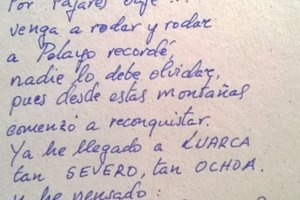 Por Pajares bajé...
venga a rodar y rodar
a Pelayo recordé,
nadie lo debe olvidar,
pues desde estas montañas
comenzó a reconquistar.
Ya he llegado a LUARCA
tan SEVERO, tan OCHOA.
y he pensado: